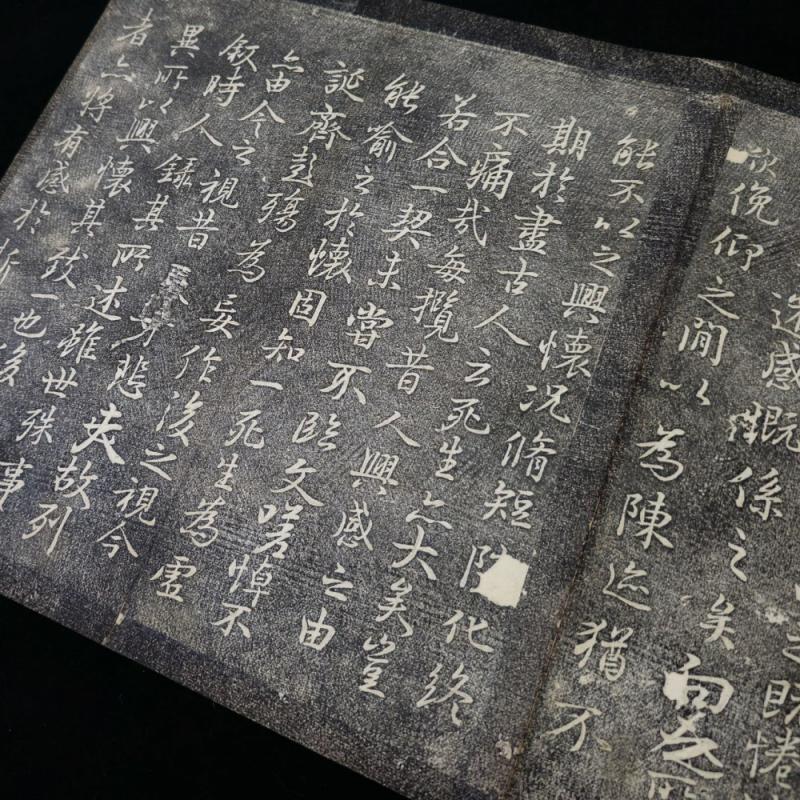 之既惓
遷感慨係之矣向之所
欣俛仰之間以為陳迹猶不
能不以之興懷況脩短隨化終
期於盡古人云死生亦大矣豈
不痛哉每攬昔人興感之由
若合一契未嘗不臨文嗟悼不
能喻之於懷固知一死生為虛
誕齊彭殤為妄作後之視今
亦由今之視昔悲夫故列
叙時人錄其所述雖世殊事
異所以興懷其致一也後
者亦將有感於斯